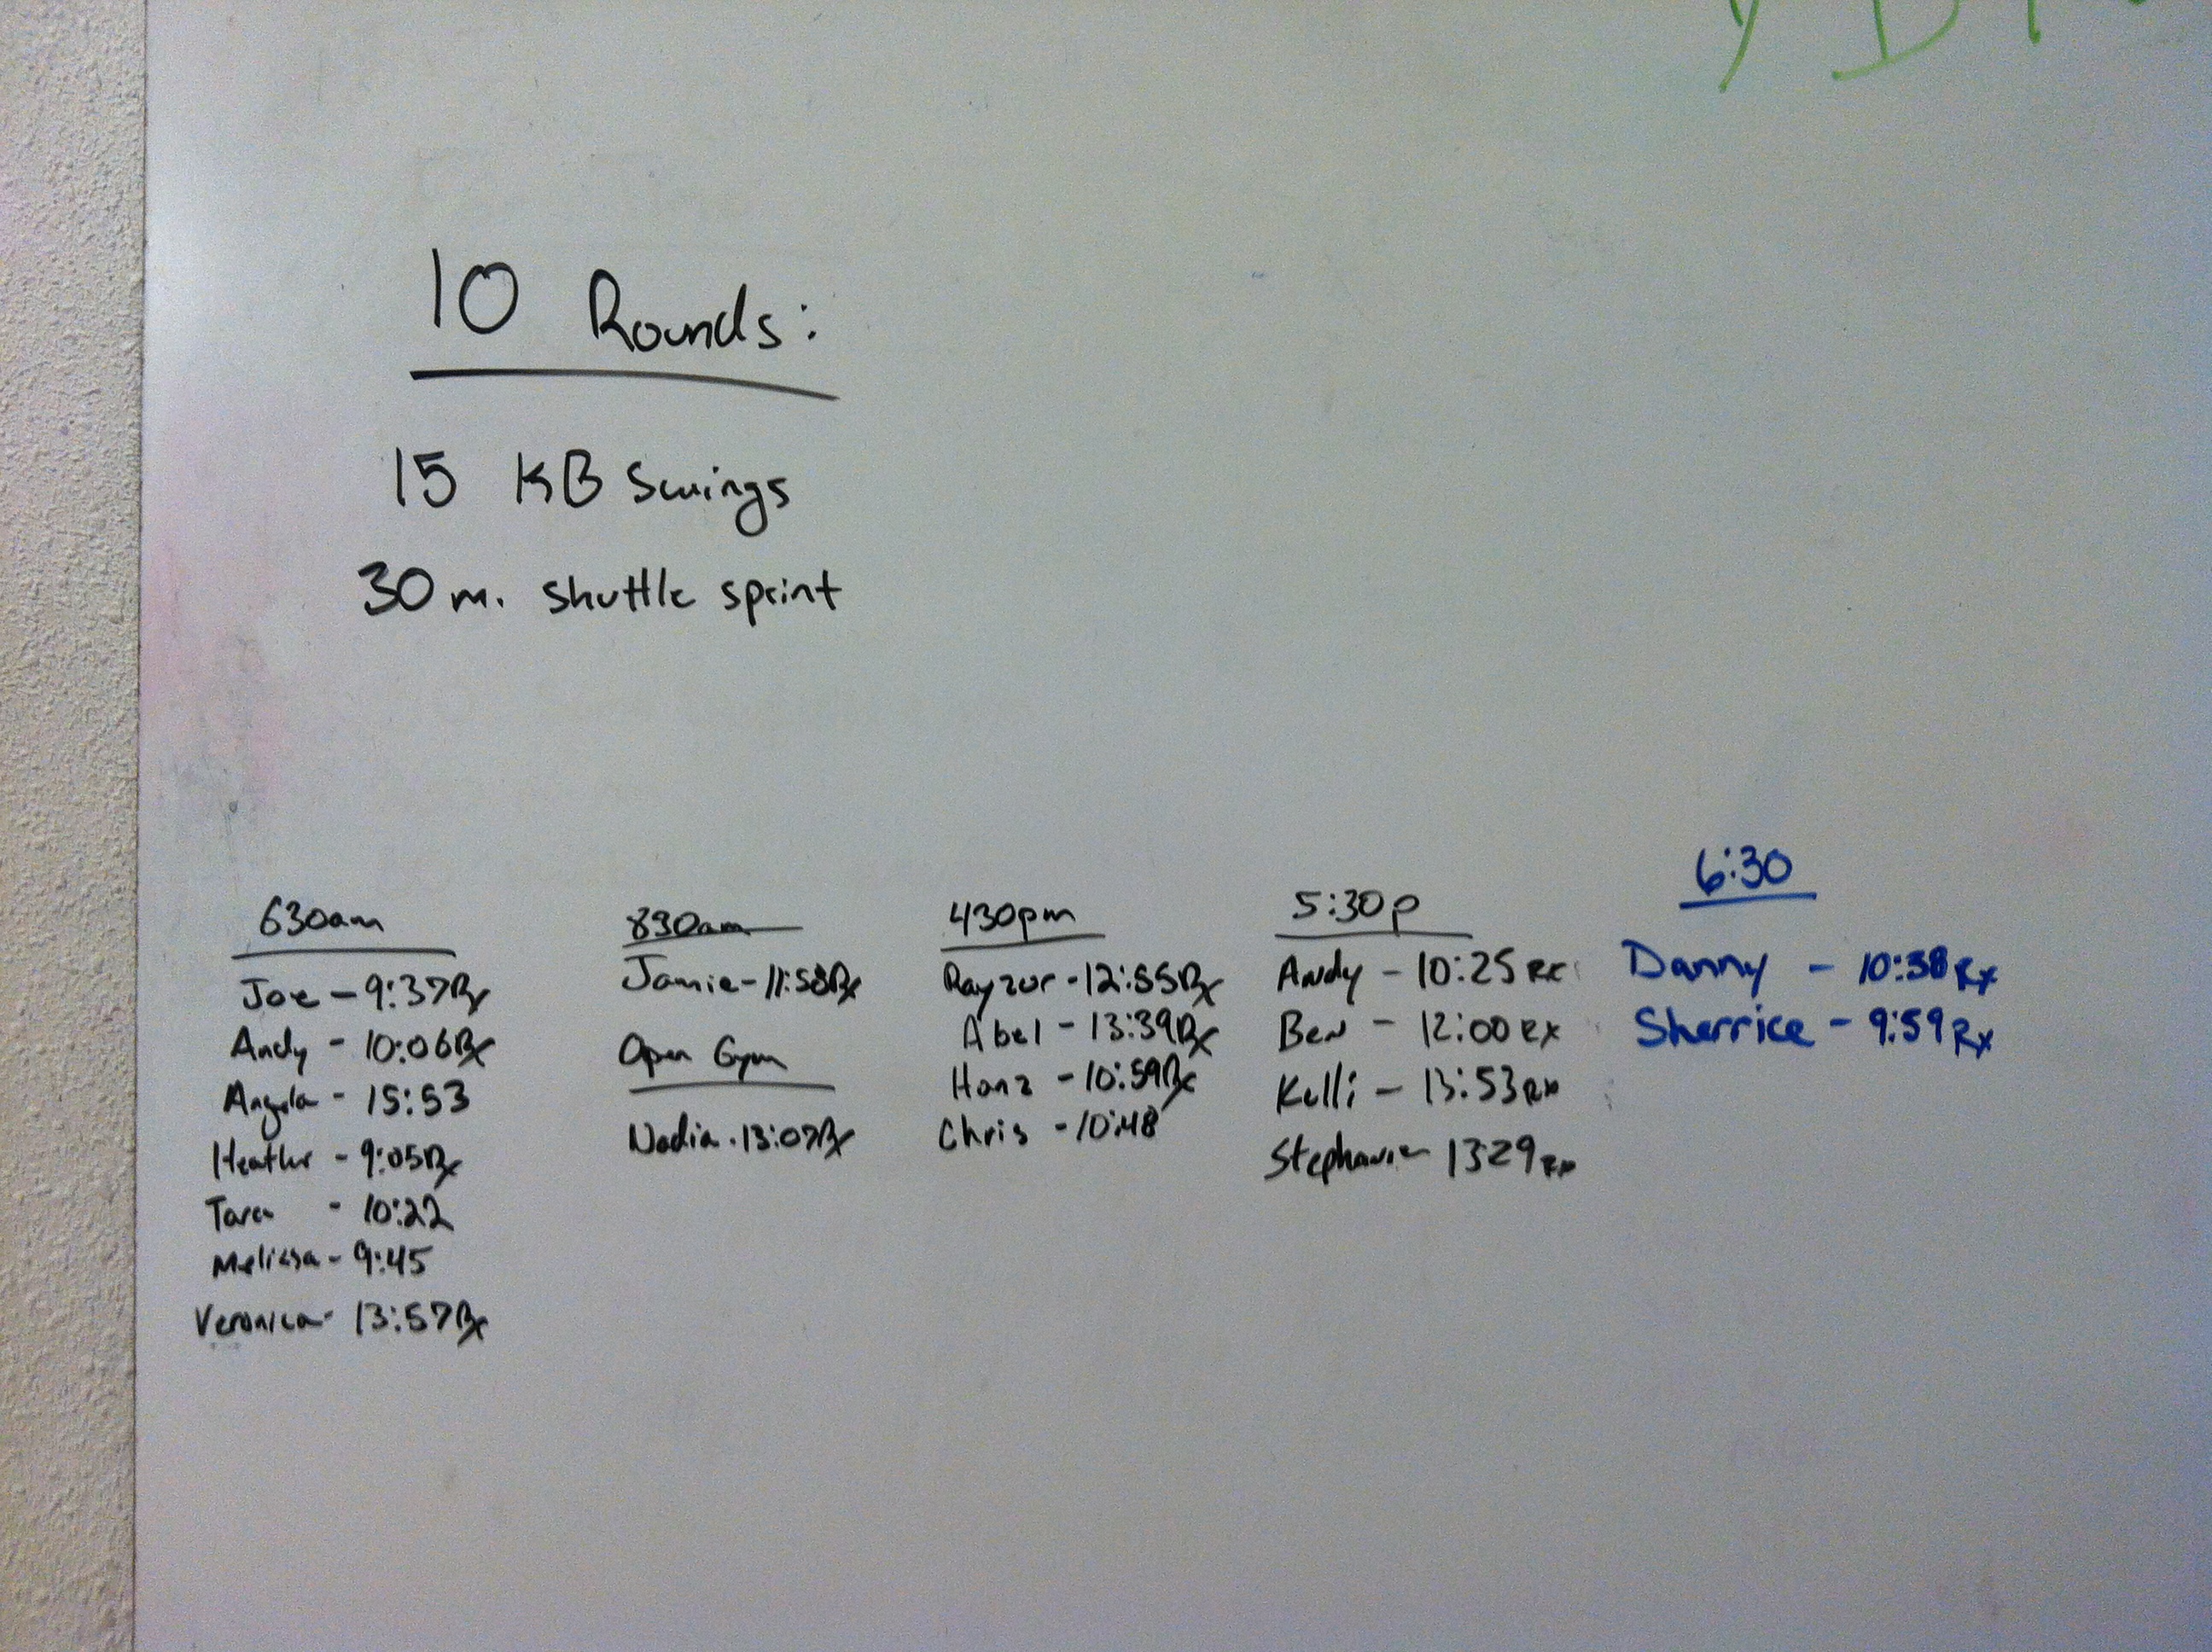 10 Rounds:
15 KB Swings
30 m. shuttle sprint
630am
Joe - 9:37Rx
Andy - 10:06Rx
Angela - 15:53
Heather - 9:05Rx
Tara - 10:22
Melissa - 9:45
Veronica - 13:57Rx
830am
Jamie - 11:58Rx
Open Gym
Nadia - 13:07Rx
430pm
Rayzor - 12:55Rx
Abel - 13:39Rx
Hanz - 10:59Rx
Chris - 10:48
5:30p
Andy - 10:25 RX
Ben - 12:00 RX
Kelli - 13:53 RX
Stephanie - 1329 RX
6:30
Danny - 10:38 Rx
Sherrice - 9:59 Rx